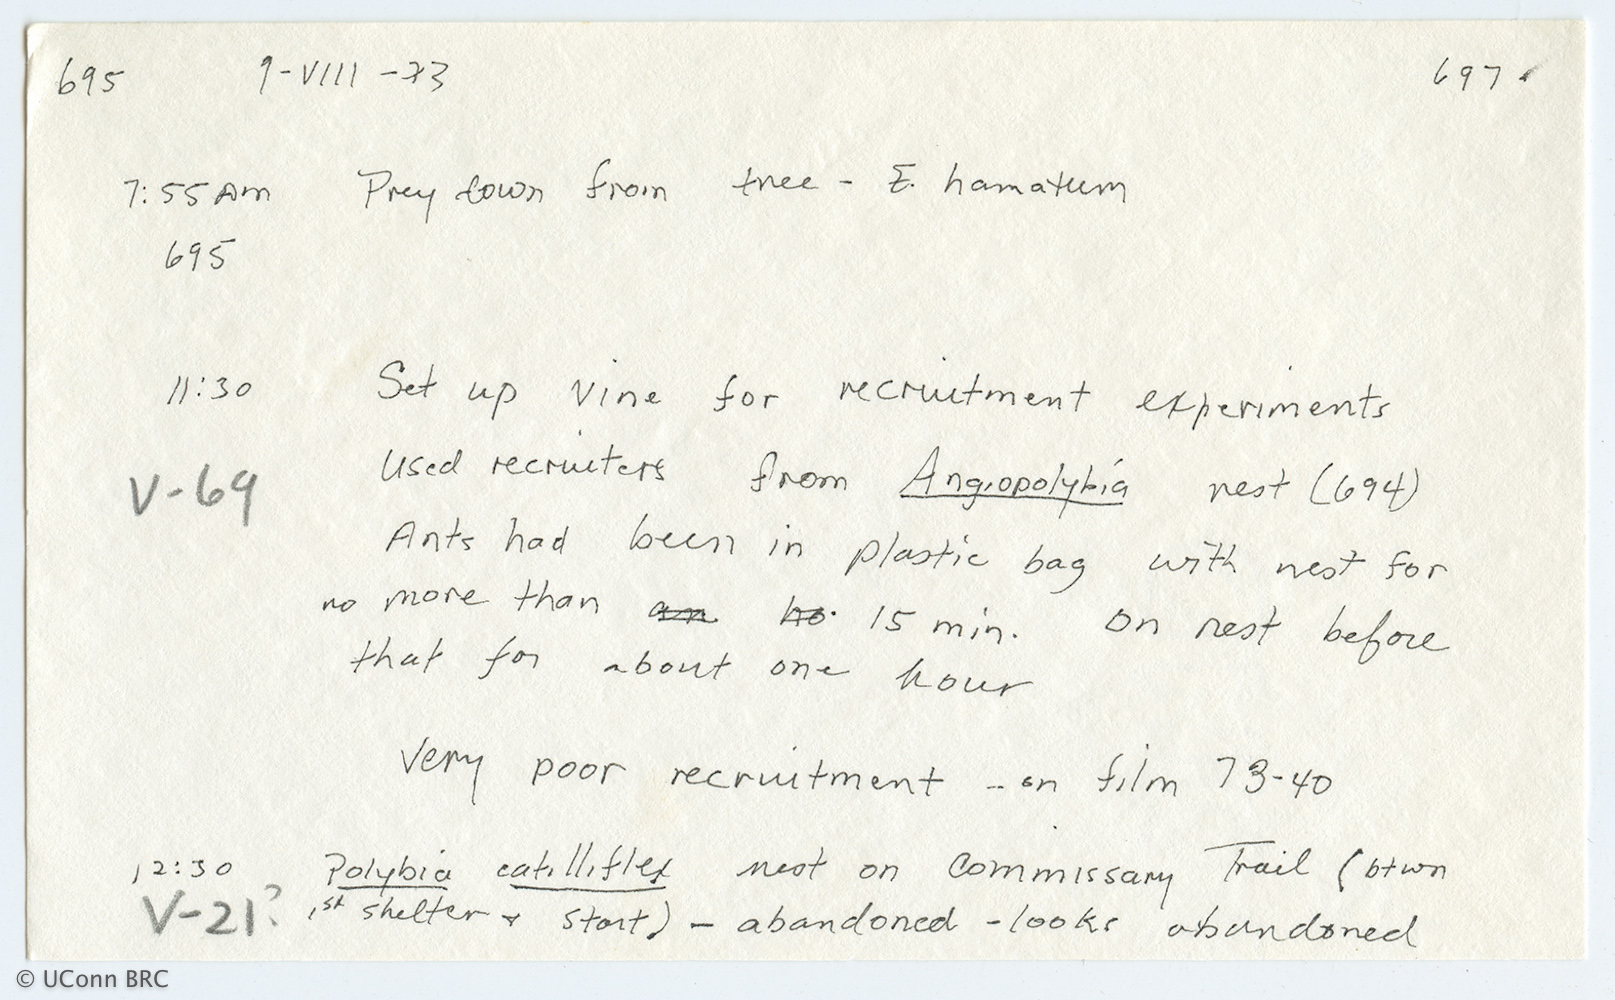 695 9-VIII-73 697
7:55 Am Prey down from tree - E. hamatum
695
11:30 Set up vine for recruitment experiments
V-69 Used recruiters from Angiopolybia nest (694)
Ants had been in plastic bag with nest for
no more than an ho. 15 min. On nest before
that for about one hour
Very poor recruitment - on film 73-40
12:30 Polybia catillifex nest on Commissary Trail (btwn
V-21? 1st shelter + start) - abandoned - looks abandoned
© UConn BRC